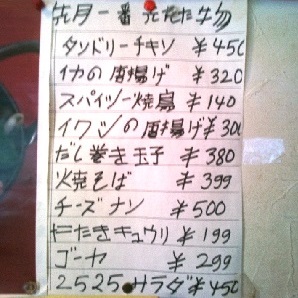 先月一番売れた物
タンドリーチキン ¥450
イカの唐揚げ ¥320
スパイシー焼鳥 ¥140
イワシの唐揚げ ¥300
だし巻き玉子 ¥380
焼そば ¥399
チーズナン ¥500
たたきキュウリ ¥199
ゴーヤ ¥299
2525サラダ ¥450